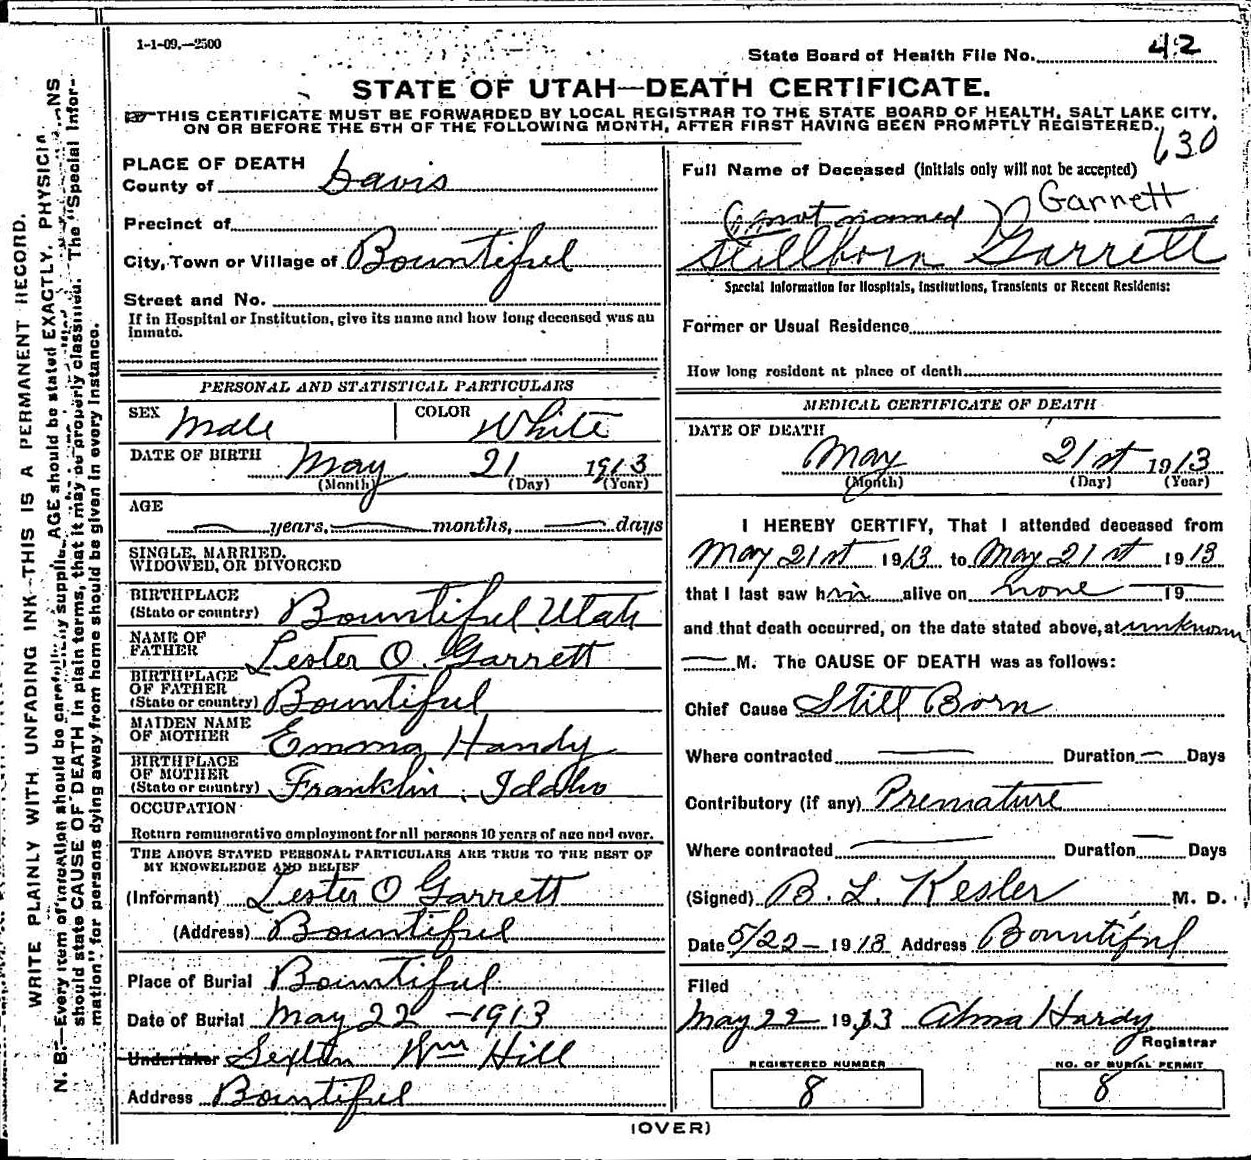 1-1-09.—2500
State Board of Health File No. 42
STATE OF UTAH—DEATH CERTIFICATE.
THIS CERTIFICATE MUST BE FORWARDED BY LOCAL REGISTRAR TO THE STATE BOARD OF HEALTH, SALT LAKE CITY,
ON OR BEFORE THE 5TH OF THE FOLLOWING MONTH, AFTER FIRST HAVING BEEN PROMPTLY REGISTERED.
630
PLACE OF DEATH
County of Davis
Precinct of
City, Town or Village of Bountiful
Street and No.
If in Hospital or Institution, give its name and how long deceased was an
inmate.
PERSONAL AND STATISTICAL PARTICULARS
SEX Male COLOR White
DATE OF BIRTH May 21 1913
(Month) (Day) (Year)
AGE
years, months, days
SINGLE, MARRIED,
WIDOWED, OR DIVORCED
BIRTHPLACE
(State or country) Bountiful Utah
NAME OF
FATHER Lester O. Garrett
BIRTHPLACE
OF FATHER
(State or country) Bountiful
MAIDEN NAME
OF MOTHER Emma Handy
BIRTHPLACE
OF MOTHER
(State or country) Franklin, Idaho
OCCUPATION
Return remunerative employment for all persons 10 years of age and over.
THE ABOVE STATED PERSONAL PARTICULARS ARE TRUE TO THE BEST OF
MY KNOWLEDGE AND BELIEF
(Informant) Lester O Garrett
(Address) Bountiful
Place of Burial Bountiful
Date of Burial May 22 - 1913
Undertaker Sexton Wm Hill
Address Bountiful
Full Name of Deceased (initials only will not be accepted)
(not named) Garnett
Stillborn Garrett
Special Information for Hospitals, Institutions, Transients or Recent Residents:
Former or Usual Residence
How long resident at place of death
MEDICAL CERTIFICATE OF DEATH
DATE OF DEATH
May 21st 1913
(Month) (Day) (Year)
I HEREBY CERTIFY, That I attended deceased from
May 21st 1913 to May 21st 1913
that I last saw him alive on none 19
and that death occurred, on the date stated above, at unknown
M. The CAUSE OF DEATH was as follows:
Chief Cause Still Born
Where contracted Duration — Days
Contributory (if any) Premature
Where contracted Duration — Days
(Signed) B. L. Kesler M. D.
Date 5/22 - 1913 Address Bountiful
Filed
May 22 1913 Alma Hardy
Registrar
REGISTERED NUMBER
8
NO. OF BURIAL PERMIT
8
(OVER)
WRITE PLAINLY WITH UNFADING INK—THIS IS A PERMANENT RECORD.
N. B.—Every item of information should be carefully supplied. AGE should be stated EXACTLY. PHYSICIANS
should state CAUSE OF DEATH in plain terms, that it may be properly classified. The "Special Infor-
mation" for persons dying away from home should be given in every instance.